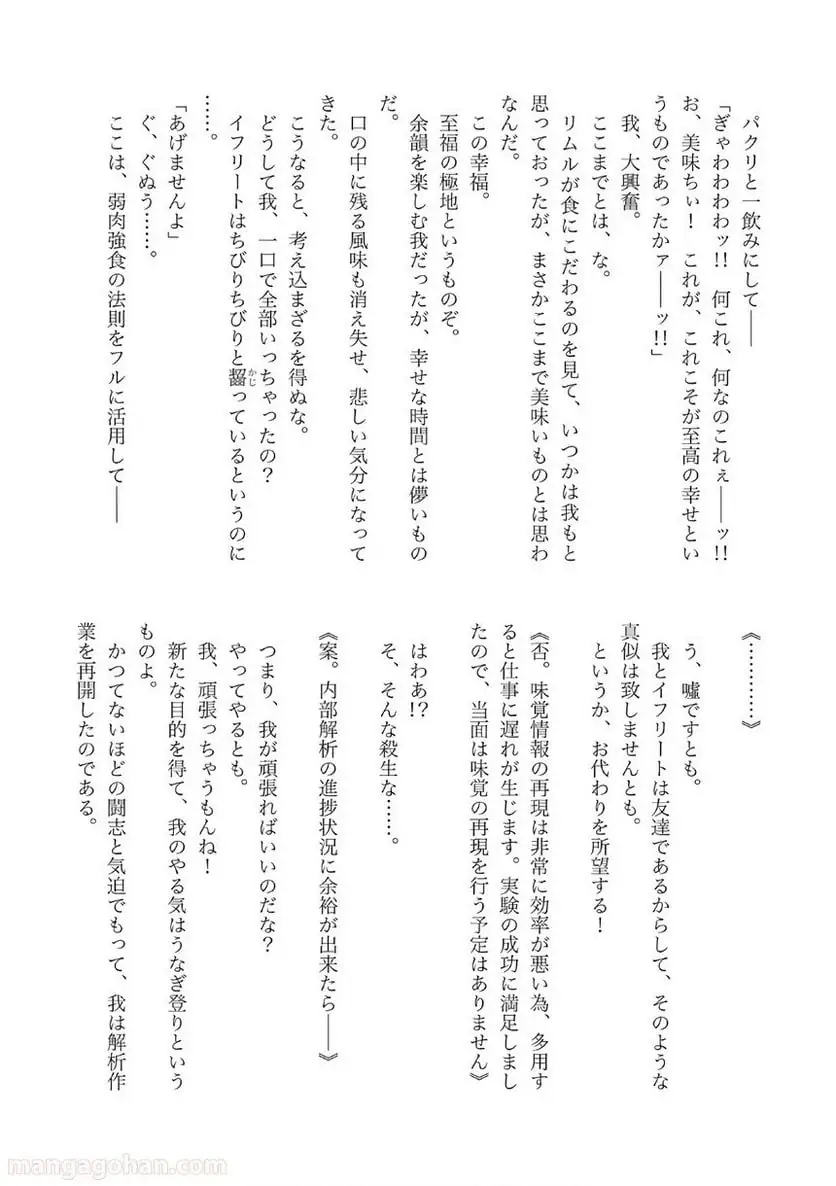 パクリと一飲みにして――
「ぎゃわわわわッ!!　何これ、何なのこれぇ――ッ!!
お、美味ちぃ！　これが、これこそが至高の幸せとい
うものであったかァ――ッ!!」
我、大興奮。
ここまでとは、な。
リムルが食にこだわるのを見て、いつかは我もと
思っておったが、まさかここまで美味いものとは思わ
なんだ。
この幸福。
至福の極地というものぞ。
余韻を楽しむ我だったが、幸せな時間とは儚いもの
だ。
口の中に残る風味も消え失せ、悲しい気分になって
きた。
こうなると、考え込まざるを得ぬな。
どうして我、一口で全部いっちゃったの？
イフリートはちびりちびりと齧っているというのに
……。
「あげませんよ」
ぐ、ぐぬう……。
ここは、弱肉強食の法則をフルに活用して――
《…………》
う、嘘ですとも。
我とイフリートは友達であるからして、そのような
真似は致しませんとも。
というか、お代わりを所望する！
《否。味覚情報の再現は非常に効率が悪い為、多用す
ると仕事に遅れが生じます。実験の成功に満足しまし
たので、当面は味覚の再現を行う予定はありません》
はわあ!?
そ、そんな殺生な……。
《案。内部解析の進捗状況に余裕が出来たら――》
つまり、我が頑張ればいいのだな？
やってやるとも。
我、頑張っちゃうもんね！
新たな目的を得て、我のやる気はうなぎ登りという
ものよ。
かつてないほどの闘志と気迫でもって、我は解析作
業を再開したのである。
かじ
mangagohan.com